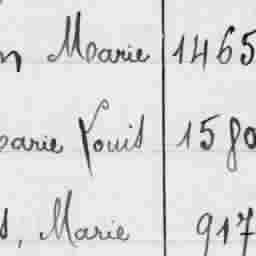 n Marie 1465
arie Louis 1580
s, Marie 917